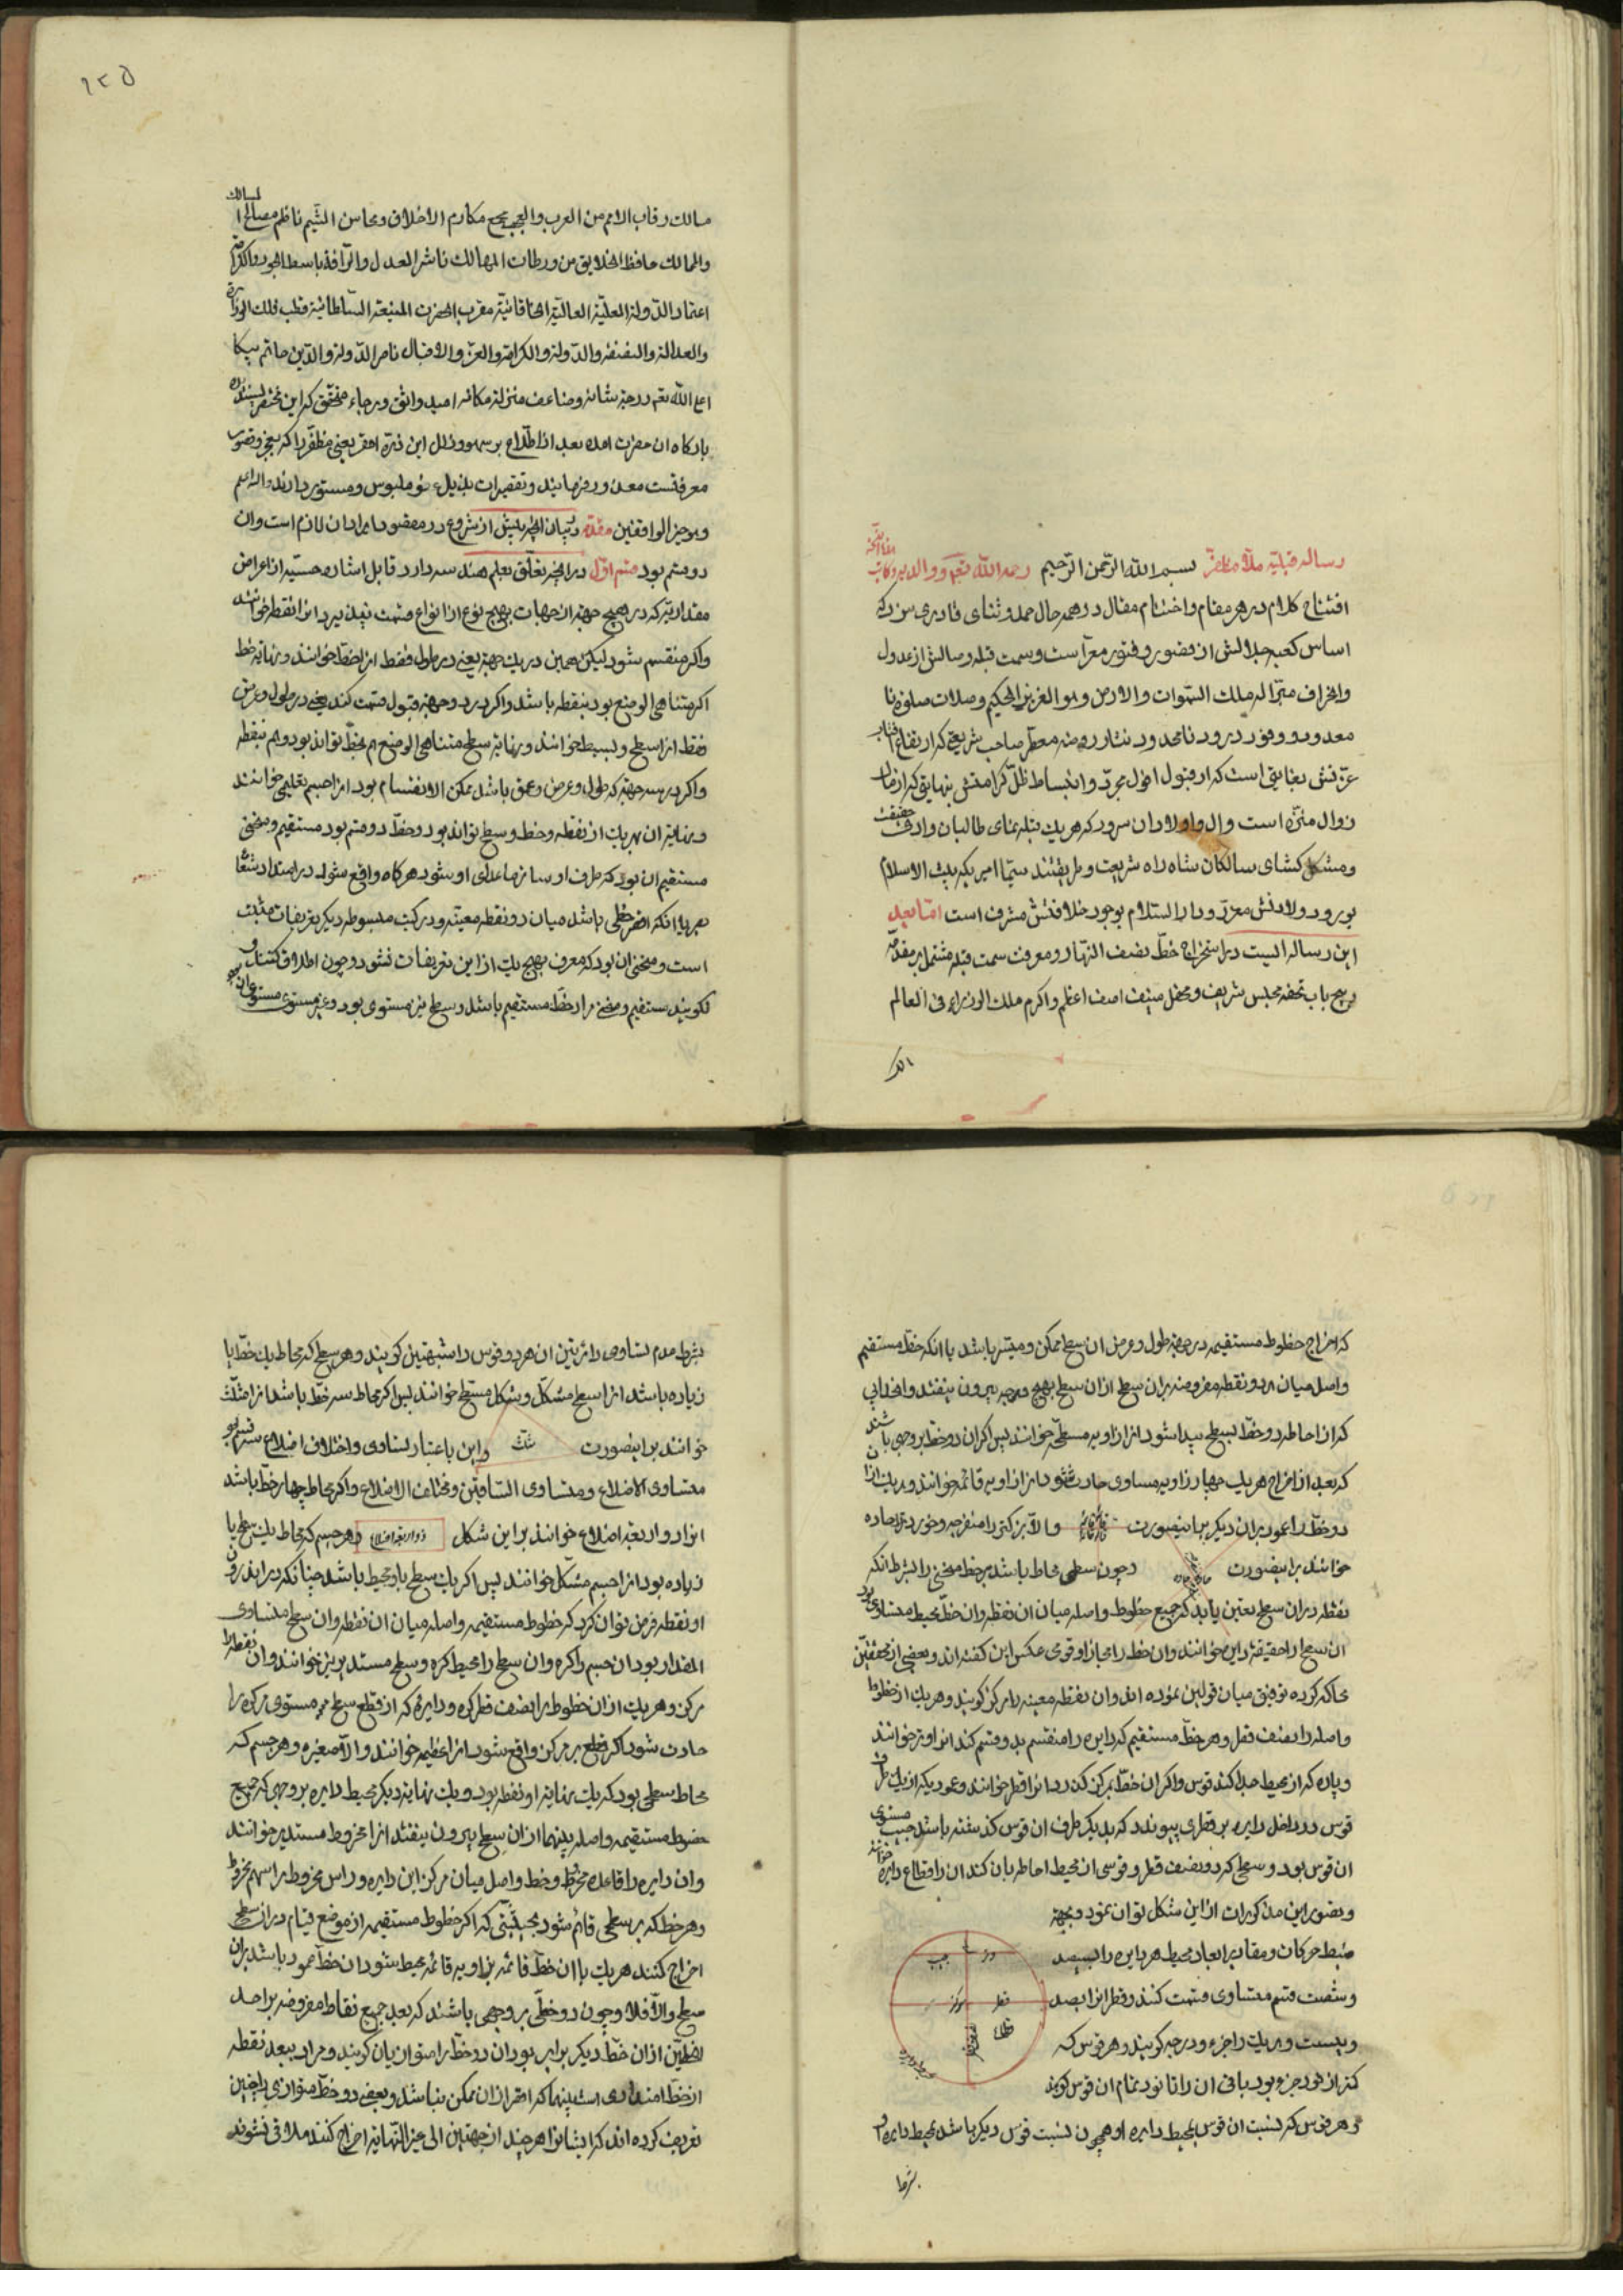 رساله قبلیه ملا مظفر رحمه الله بسم الله الرحمن الرحیم
افتتاح کلام در هر مقام و اختتام مقال در همه حال حمد و ثنای قادری سزد که
اساس کعبه جلالش از قصور و فتور معراست و سمت قبله رسالتش از عدول
و انحراف مبرا له ملک السموات و الارض و هو العزیز الحکیم و صلات صلوة نا
معدود و وفور درود نامحدود نثار روضه معطر صاحب شریعتی که ارتفاع آفتاب
عزتش بغایتی است که از قبول افول مجرد و انبساط ظل کرامتش بنهایتی که از
زوال منزه است و ال و اولاد ان سرور که هریک قبله نمای طالبان وادی حقیقت
و مشکل کشای سالکان شاه راه شریعت و طریقتند سیما امیری که بیت الاسلام
بورود ولادتش معزز و دار السلام بوجود خلافتش مشرف است اما بعد
این رساله ایست در استخراج خط نصف النهار و معرفت سمت قبله مشتمل بر مقدمه
و پنج باب تحفه مجلس شریف و محفل منیف اصف اعظم و اکرم ملک الوزراء فی العالم
۱۲۵
مالک رقاب الامم من العرب و العجم مجمع مکارم الاخلاق و محاسن الشیم ناظم مصالح المسالک
و الممالک حافظ الخلایق من ورطات المهالک ناشر العدل و الرافة باسط الجود و
اعتماد الدولة العلیة العالیة الخاقانیة مقرب الحضرت المنیعة السلطانیة قطب فلک الوزارة
و العدالة و النصفة و الدولة و الکرامة و العز و الاقبال ناصر الدولة و الدین حاتم بیکا
اعلی الله تعم درجة شانه و ضاعف منزلة مکانه امید واثق و رجاء محقق که این مختصر پسندیده
بارگاه ان حضرت امده بعد از اطلاع بر سهو و زلل این ذره احقر یعنی مظفر را که بعجز و قصور
معرفست معذور فرمایند و تقصیرات بذیل عفو ملبوس و مستور دارند و الله اعلم
و هو خیر الواقفین مقدمه در بیان انچه پیش از شروع در مقصود ایراد ان لازم است و ان
دو قسم بود قسم اول در انچه تعلق بعلم هندسه دارد قابل اشاره حسیه از اعراض
مقداریة که در هیچ جهة از جهات بهیچ نوع از انواع قسمت نپذیرد انرا نقطه خوانند
و اگر منقسم شود لیکن همین در یک جهة یعنی در طول فقط انرا خط خوانند و نهایة خط
اگر متناهی الوضع بود بنقطه باشد و اگر در دو جهة قبول قسمت کند یعنی در طول و عرض
فقط انرا سطح و بسیط خوانند و نهایة سطح متناهی الوضع هم بخط تواند بود و هم بنقطه
و اگر در سه جهة که طول و عرض و عمق باشد ممکن الانقسام بود انرا جسم تعلیمی خوانند
و نهایة ان بهریک از نقطه و خط و سطح تواند بود و خط دو قسم بود مستقیم و منحنی
مستقیم ان بود که طرف او ساتر ماعدای او شود هرگاه واقع شود در امتداد شعاع
بصر یا انکه اقصر خطی باشد میان دو نقطه معینه و در کتب مبسوطه دیگر تعریفات مثبت
است و منحنی ان بود که معرف بهیچ یک از این تعریفات نشود و چون اطلاق کنند و
نگویند مستقیم و منحنی مراد خط مستقیم باشد و سطح نیز مستوی بود و غیر مستوی مستوی ان بود
که اخراج خطوط مستقیمه در جهة طول و عرض ان سطح ممکن و میسر باشد یا انکه خط مستقیم
واصل میان هر دو نقطه مفروضه بران سطح ازان سطح بهیچ وجه بیرون نیفتد و انحدابی
که از احاطه دو خط بسطح پیدا شود انرا زاویه مسطحه خوانند پس اگر ان دو خط بر وجهی باشند
که بعد از اخراج هریک چهار زاویه مساوی حادث شود انرا زاویه قائمه خوانند و هریک ازان
دو خط را عمود بران دیگر براینصورت و الا بزرگتر را منفرجه و خوردتر را حاده
خوانند براینصورت و چون سطحی محاط باشد بر خط منحنی را بشرط انکه
نقطه دران سطح تعین یابد که جمیع خطوط واصله میان ان نقطه و ان خط محیط متساوی بود
ان سطح را حقیقة دایره خوانند و ان خط را مجازا و قومی عکس این گفته اند و بعضی از محققین
محاکمه کرده توفیق میان قولین نموده اند و ان نقطه معینه را مرکز گویند و هریک از خطوط
واصله را نصف قطر و هر خط مستقیم که دایره را منقسم بدو قسم کند انرا وتر خوانند
و پاره که از محیط جدا کند قوس و اگر ان خط بمرکز گذرد انرا قطر خوانند و عمودیکه از یک طرف
قوس در داخل دایره بر قطری پیوندد که بدیگر طرف ان قوس گذشته باشد جیب مستوی
ان قوس بود و سطحی که دو نصف قطر و قوسی از محیط احاطه بان کند ان را قطاع دایره خوانند
و تصور این مذکورات از این شکل توان نمود و بجهة
ضبط حرکات و مقادیر ابعاد محیط هر دایره را بسیصد
و شصت قسم متساوی قسمت کنند و قطر انرا بصد
و بیست و هریک را جزء و درجه گویند و هر قوس که
کمتر از نود جزو بود باقی ان را تا نود تمام ان قوس گویند
و هر قوس که نسبت ان قوس بمحیط دایره او همچون نسبت قوس دیگر باشد بمحیط دایره او
وتر جیب
قطر مرکز
قطاع
بشرط
بشرط عدم تساوی دائرتین ان هر دو قوس را شبیهتین گویند و هر سطح که محاط بیک خط یا
زیاده باشد انرا سطح مشکل و شکل مسطح خوانند پس اگر محاط سه خط باشد انرا مثلث
خوانند براینصورت مثلث و این باعتبار تساوی و اختلاف اضلاع سه قسم بود
متساوی الاضلاع و متساوی الساقین و مختلف الاضلاع و اگر محاط چهار خط باشد
انرا ذو اربعة اضلاع خوانند براین شکل ذو اربعة اضلاع و هر جسم که محاط بیک سطح یا
زیاده بود انرا جسم مشکل خوانند پس اگر یک سطح باو محیط باشد چنانکه در اندرون
او نقطه فرض توان کرد که خطوط مستقیمه واصله میان ان نقطه و ان سطح متساوی
المقدار بود ان جسم را کره و ان سطح را محیط کره و سطح مستدیر نیز خوانند و ان نقطه را
مرکز و هریک از ان خطوط را نصف قطر کره و دایره که از قطع سطح مستوی مر کره را
حادث شود اگر قطع بر مرکز واقع شود انرا عظیمه خوانند و الا صغیره و هر جسم که
محاط سطحی بود که یک نهایة او نقطه بود و یک نهایة دیگر محیط دایره بر وجهی که جمیع
خطوط مستقیمه واصله بینهما ازان سطح بیرون نیفتد انرا مخروط مستدیر خوانند
و ان دایره را قاعده مخروط و خط واصل میان مرکز این دایره و راس مخروط را سهم مخروط
و هر خط که بر سطحی قائم شود بحیثیتی که اگر خطوط مستقیمه از موضع قیام دران سطح
اخراج کنند هریک با ان خط قائمه بزاویه قائمه محیط شود ان خط عمود باشد بران
سطح و الا فلا و چون دو خطی بر وجهی باشند که بعد جمیع نقاط مفروضه بر احد
الخطین ازان خط دیگر برابر بود ان دو خط را متوازیان گویند و مراد ببعد نقطه
از خط امتدادی است بینهما که اقصر ازان ممکن نباشد و بعضی دو خط متوازی را چنین
تعریف کرده اند که ایشانرا هرچند از جهتین الی غیر النهایة اخراج کنند ملاقی نشوند